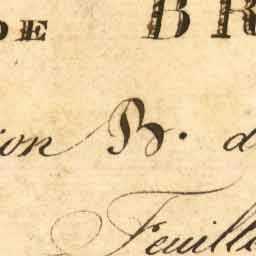 DE BR
ion B. d
Feuille